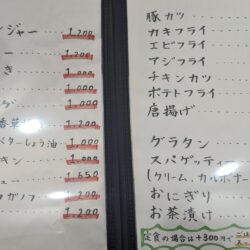 ンジャー 1.200
ー 1.200
き 1.000
1.000
ダ 1.000
香草 1.200
バターしょう油 1.000
キン 1.000
ュー 1.550
ガノフ 1.200
1.200
豚カツ
カキフライ
エビフライ
アジフライ
チキンカツ
ポテトフライ
唐揚げ
グラタン
スパゲッティー
(クリーム、カルボナー
おにぎり
お茶漬け
定食の場合は+300円で